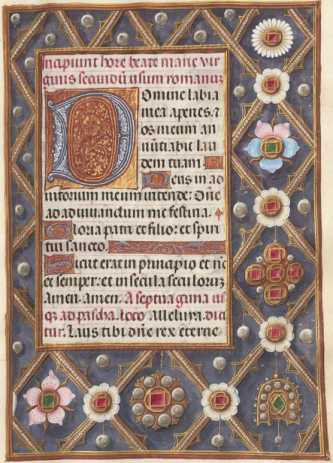 Incipiunt hore beate marie vir
ginis secūdū usum romanum
Domine labia
mea aperies. &
os meum an
nūtiabit lau
dem tuam.
Deus in ad
iutorium meum intende: Dñe
ad adiuvandum me festina.
Gloria patri et filio: et spiri
tui sancto.
Sicut erat in principio et nūc
et semper: et in secula seculorum
Amen. Amen. A septuagīma us
q̄ ad pascha. loco Alleluya. dici
tur. Laus tibi dñe rex eterne